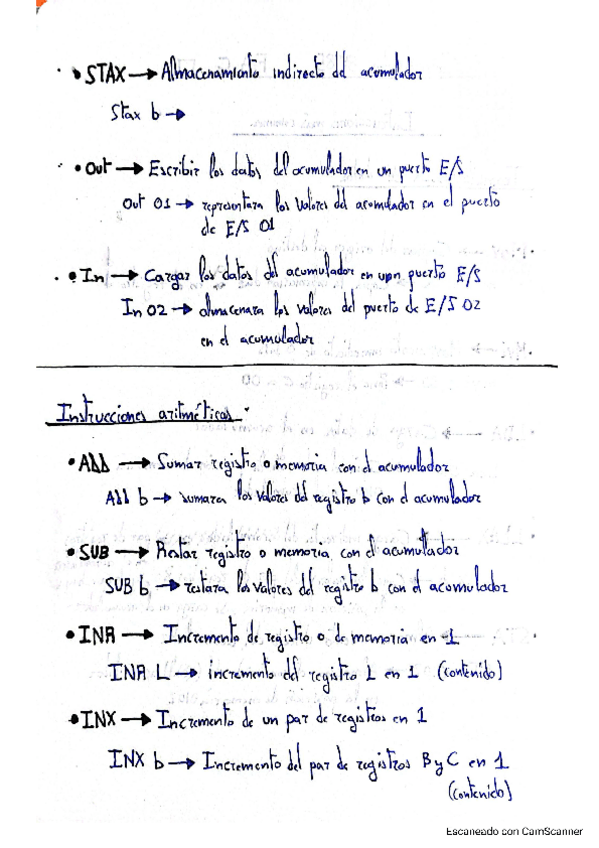 • STAX → Almacenamiento indirecto del acumulador
Stax b →
• Out → Escribir los datos del acumulador en un puerto E/S
Out 01 → representara los valores del acumulador en el puerto
de E/S 01
• In → Cargar los datos del acumulador en un puerto E/S
In 02 → almacenara los valores del puerto de E/S 02
en el acumulador
Instrucciones aritméticas.
• ADD → Sumar registro o memoria con el acumulador
ADD b → sumara los valores del registro b con el acumulador
• SUB → Restar registro o memoria con el acumulador
SUB b → restara los valores del registro b con el acomulador
• INR → Incremento de registro o de memoria en 1
INR L → incremento del registro L en 1 (contenido)
• INX → Incremento de un par de registros en 1
INX b → Incremento del par de registros B y C en 1
(contenido)
Escaneado con CamScanner